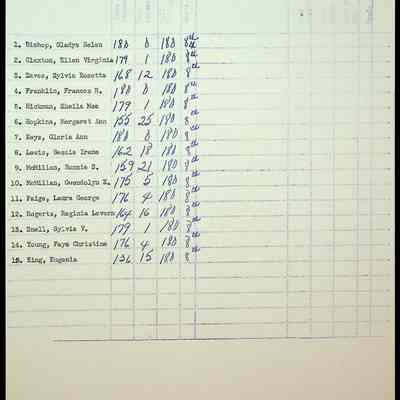 1. Bishop, Gladys Helen 180 0 180 8th
2. Claxton, Ellen Virginia 179 1 180 8th
3. Daves, Sylvia Rosetta 168 12 180 8th
4. Franklin, Frances R. 180 0 180 8th
5. Hickman, Sheila Mae 179 1 180 8th
6. Hopkins, Margaret Ann 155 25 180 8th
7. Keys, Gloria Ann 180 0 180 8th
8. Lewis, Bessie Irene 162 18 180 8th
9. McMillan, D. 159 21 180 8th
10. McMillan, Gwendolyn E. 175 5 180 8th
11. Paige, Laura George 176 4 180 8th
12. Rogerts, Reginia Lavern 164 16 180 8th
13. Snell, Sylvia V. 179 1 180 8th
14. Young, Faye Christine 176 4 180 8th
15. King, Eugenia 136 15 180 8th